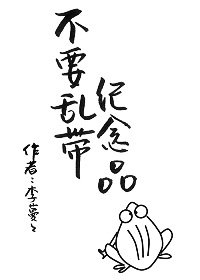 不要乱带
纪念品
作者:李蔓蔓